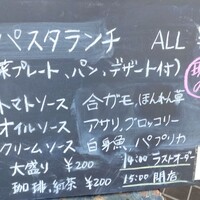 パスタランチ ALL ¥
菜プレート、パン、デザート付)
トマトソース 合ガモ、ほんれん草
オイルソース アサリ、ブロッコリー
クリームソース 白身魚、パプリカ
大盛り ¥200 14:00 ラストオーダー
珈琲、紅茶 ¥200 15:00 閉店